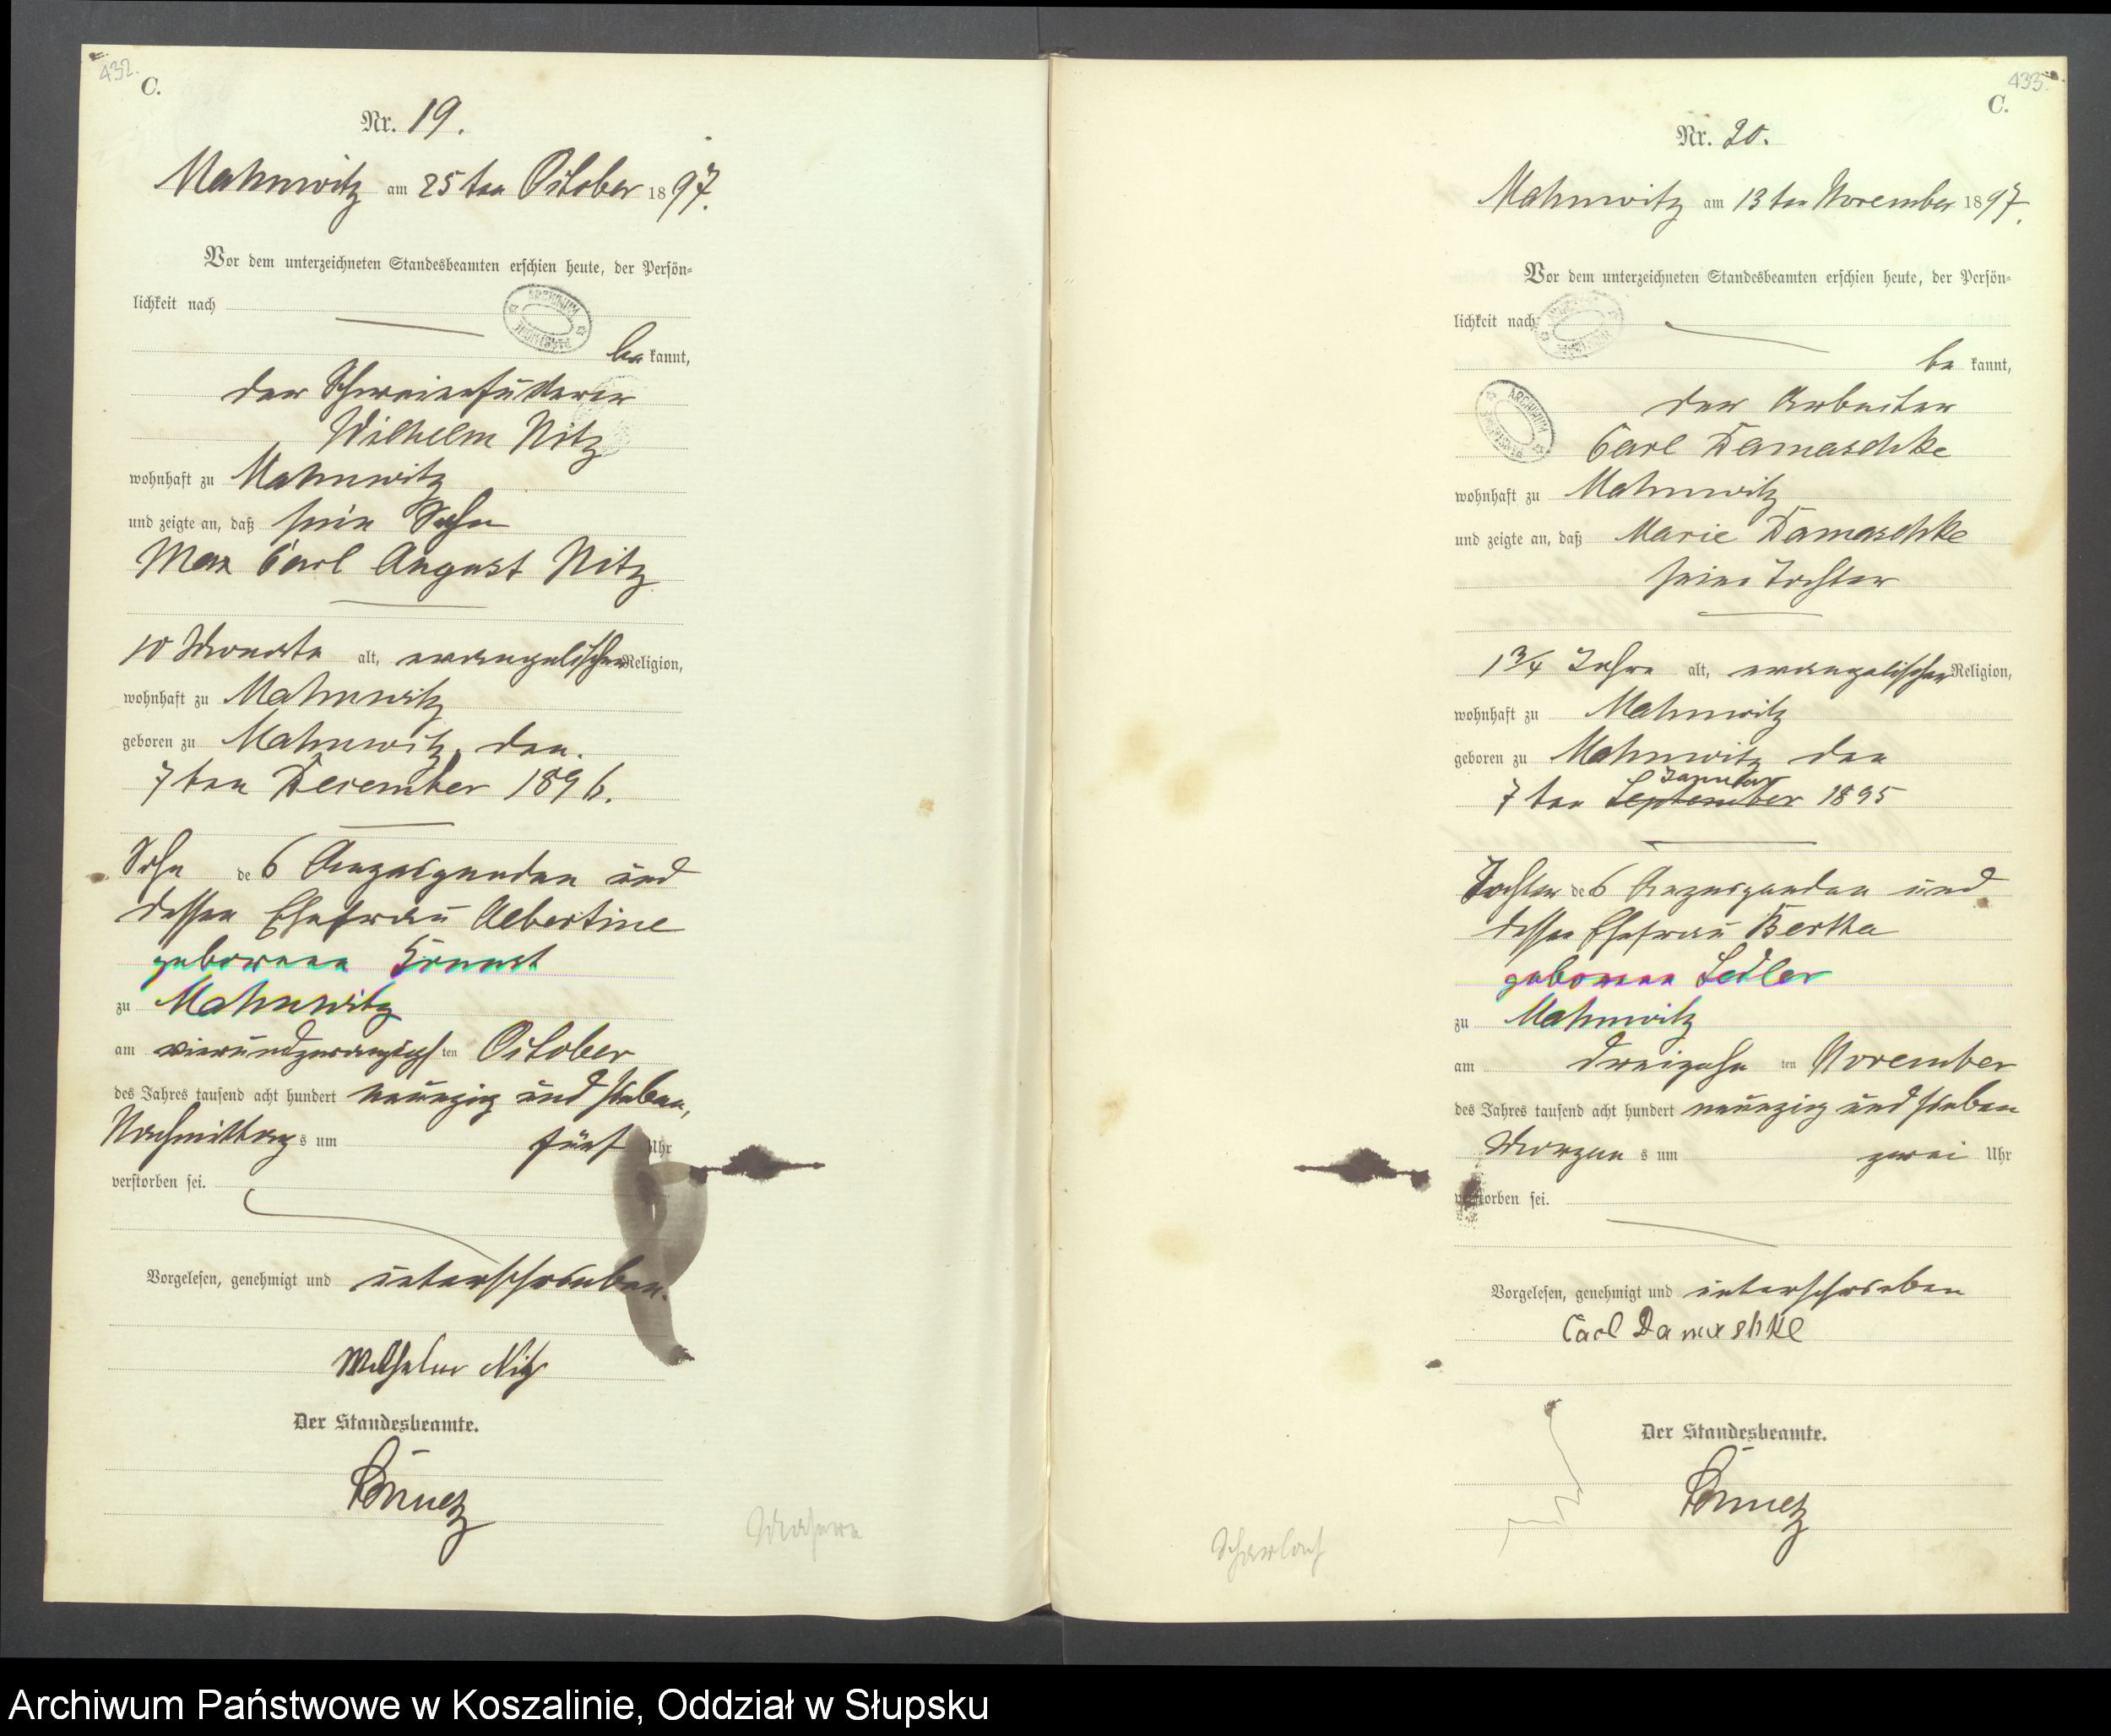 432.
C.
Nr. 19.
Mahnwitz am 25ten October 1897.
Vor dem unterzeichneten Standesbeamten erschien heute, der Persön-
lichkeit nach
ARCHIWUM PAŃSTWOWE
bekannt,
der Schweinefütterer
Wilhelm Nitz
wohnhaft zu Mahnwitz
und zeigte an, daß sein Sohn
Max Carl August Nitz
10 Monate alt, evangelischer Religion,
wohnhaft zu Mahnwitz
geboren zu Mahnwitz, den
7ten December 1896.
Sohn des Anzeigenden und
dessen Ehefrau Albertine
geborenen
zu Mahnwitz
am vierundzwanzigsten October
des Jahres tausend acht hundert neunzig und sieben,
Nachmittags um fünf Uhr
verstorben sei.
Vorgelesen, genehmigt und unterschrieben.
Wilhelm Nitz
Der Standesbeamte.
Masern
433.
C.
Nr. 20.
Mahnwitz am 13ten November 1897.
Vor dem unterzeichneten Standesbeamten erschien heute, der Persön-
lichkeit nach
bekannt,
ARCHIWUM PAŃSTWOWE
der Arbeiter
Carl Damaschke
wohnhaft zu Mahnwitz
und zeigte an, daß Marie Damaschke
seine Tochter
1 3/4 Jahre alt, evangelischer Religion,
wohnhaft zu Mahnwitz
geboren zu Mahnwitz den
Januar
7ten September 1895
Tochter des Anzeigenden und
dessen Ehefrau Bertha
geborenen Sedler
zu Mahnwitz
am dreizehnten November
des Jahres tausend acht hundert neunzig und sieben
Morgens um zwei Uhr
verstorben sei.
Vorgelesen, genehmigt und unterschrieben
Carl Damaschke
Der Standesbeamte.
Scharlach
Archiwum Państwowe w Koszalinie, Oddział w Słupsku